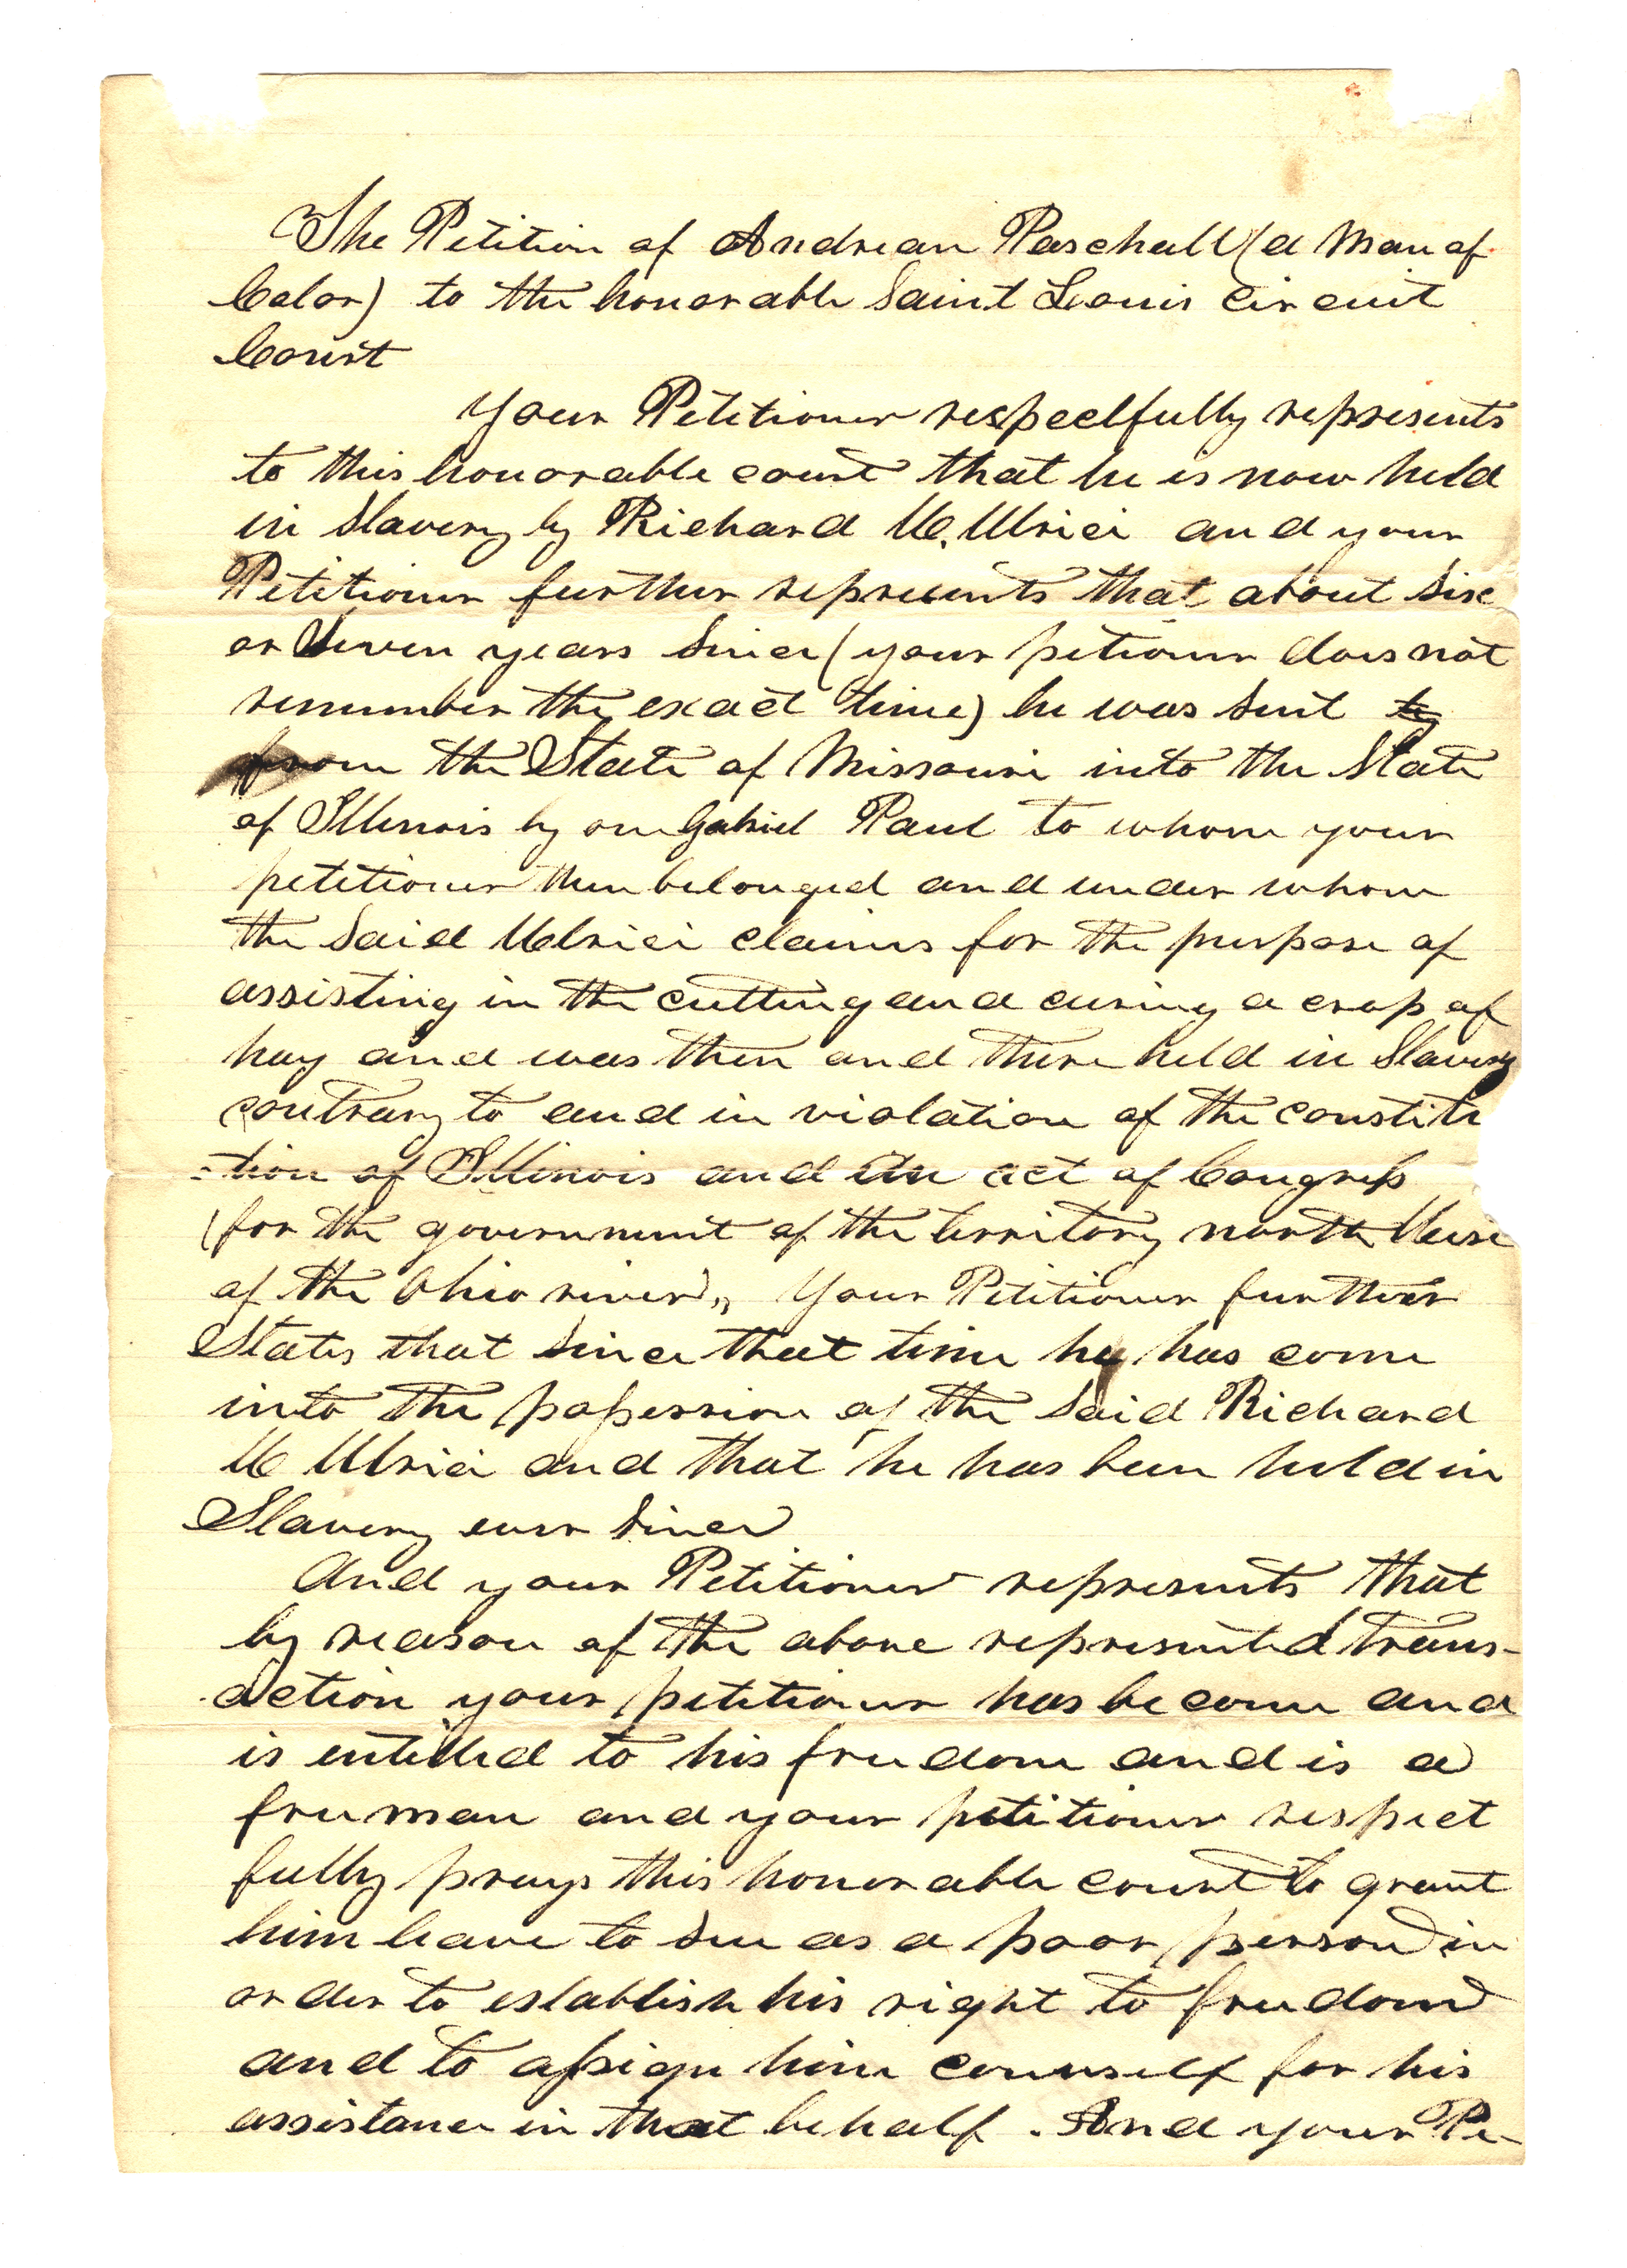 The Petition of Andrean Paschall (a Man of
Color) to the honorable Saint Louis Circuit
Court
Your Petitioner respectfully represents
to this honorable court that he is now held
in Slavery by Richard W. Ulrici and your
Petitioner further represents that about Six
or Seven years Since (your petioner does not
remember the exact time) he was Sent to
from the State of Missouri into the State
of Illinois by one Gabriel Paul to whom your
petitioner then belonged and under whom
the Said Ulrici claims for the purpose of
assisting in the cutting and curing a crop of
hay and was then and there held in Slavery
contrary to and in violation of the constitu
-tion of Illinois and An act of Congress
(for the government of the territory north West
of the Ohio river), Your Petitioner further
States that Since that time he has come
into the possession of the Said Richard
W Ulrici and that he has been held in
Slavery ever Since
And your Petitioner represents that
by reason of the above represented trans-
action your petitioner has become and
is entitled to his freedom and is a
free man and your petitioner respect
fully prays this honorable court to grant
him leave to Sue as a poor person in
order to establish his right to freedom
and to assign him counself for his
assistance in that behalf. And your Pe-